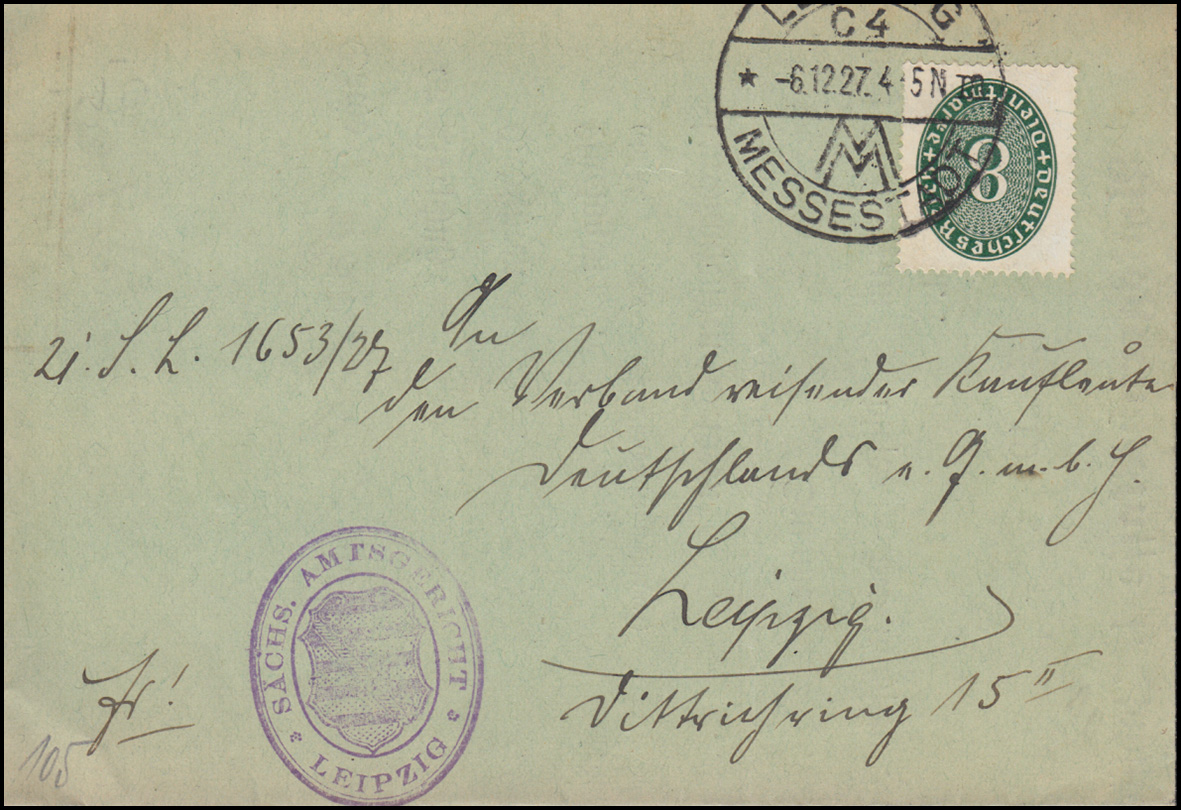 LEIPZIG
C4
* -6.12.27. 4-5 N *
MESSESTADT
Deutsches Reich + Dienstmarke +
8
S. L. 1653/27
An
den Verband reisender Kaufleute
Deutschlands e. G. m. b. H.
Leipzig.
Dittrichring 15 II
SÄCHS. AMTSGERICHT
* LEIPZIG *
Fr!
105